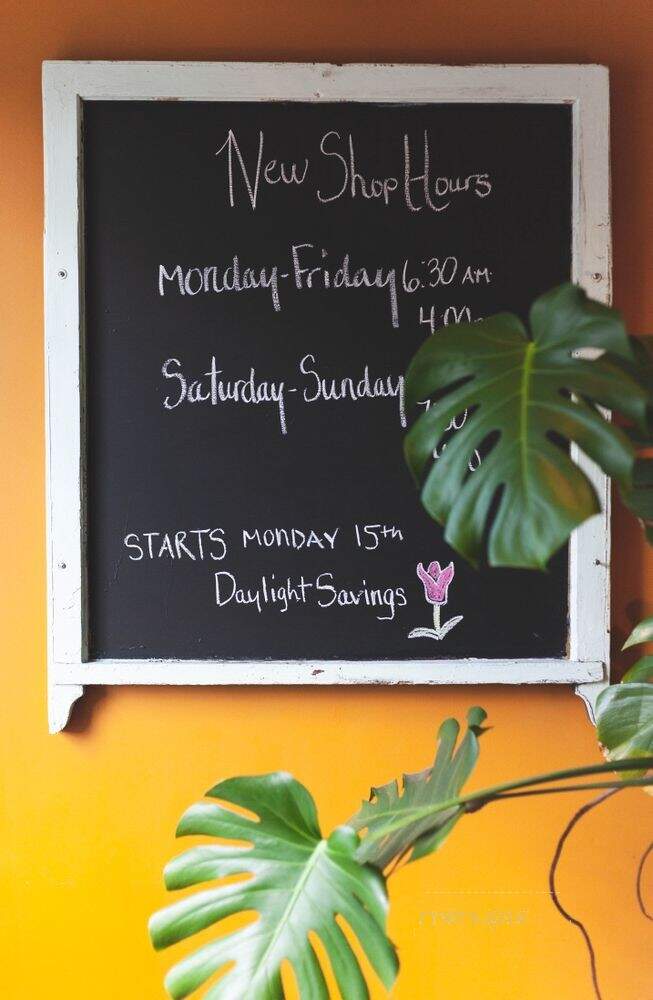 New Shop Hours
Monday-Friday 6:30 AM
4:00
Saturday-Sunday
STARTS MONDAY 15th
Daylight Savings